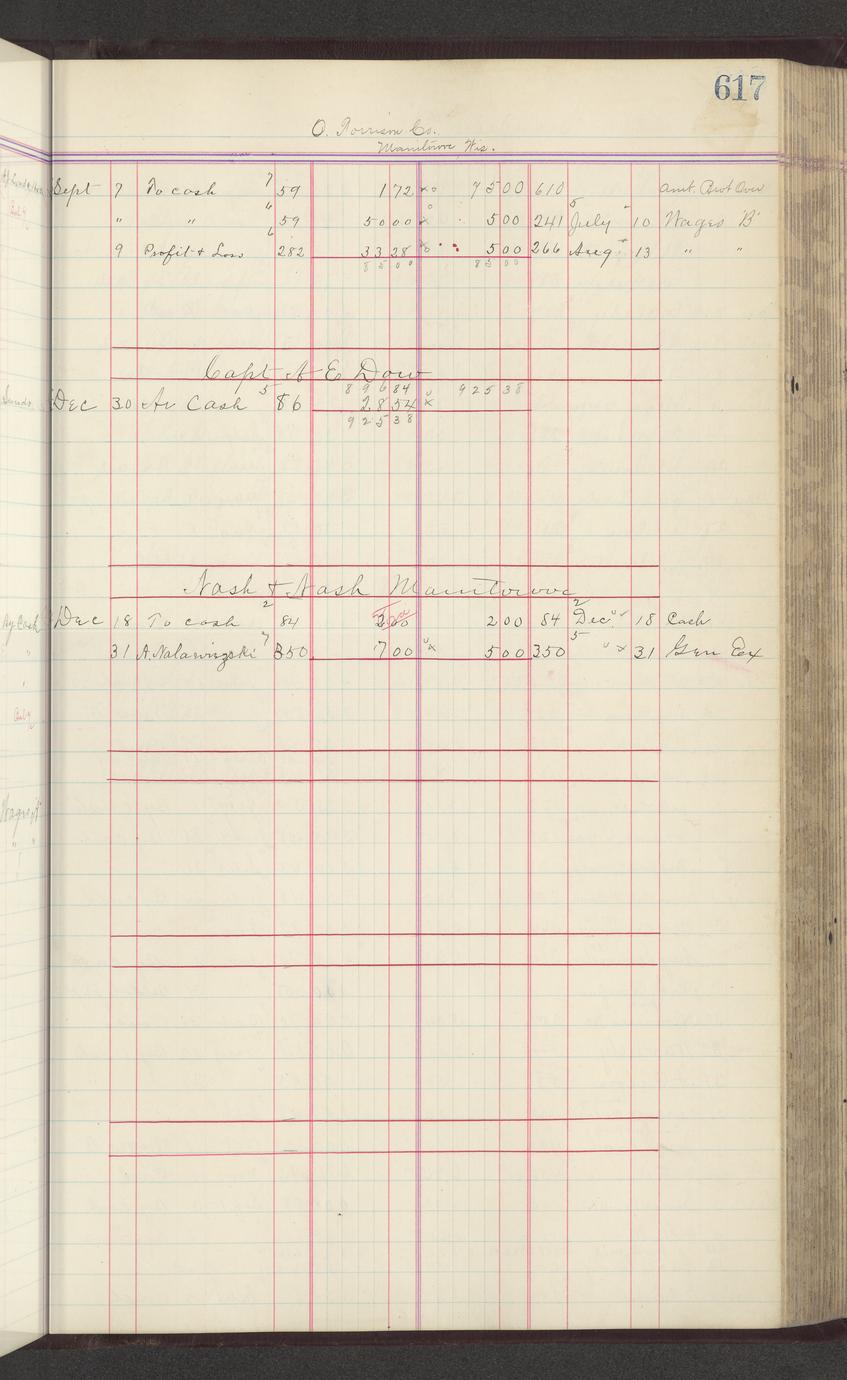 617
O. Torrison Co.
Manitowoc Wis.
Sept 7 To cash 7 59 1 72 xo 75 00 610 Amt. Brot Over
" " 6 59 50 00 x 5 00 241 5 July 10 Wages B
9 Profit & Loss 6 282 33 28 x 5 00 266 Aug 13 " "
85 00 85 00
Capt A E Dow
896 84 925 38
Dec 30 Av Cash 5 86 28 54 x
925 38
Nash & Nash Manitowoc
Dec 18 To cash 2 84 200 2 00 84 2 Dec 18 Cash
31 7 350 7 00 x 5 00 350 5 31 Gen Ex